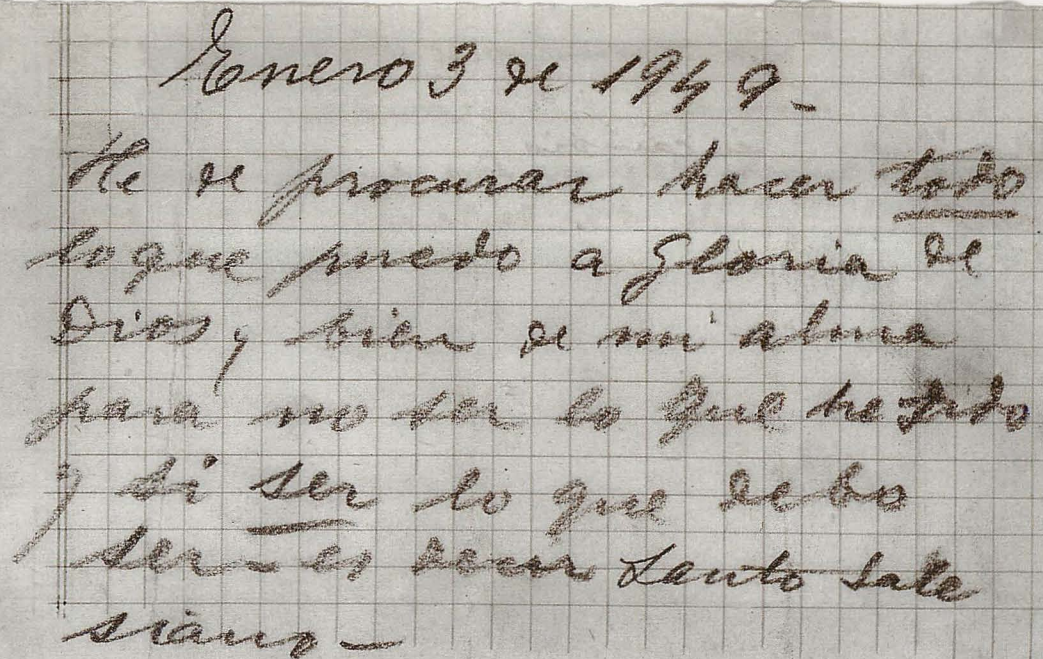 Enero 3 de 1949.-
He de procurar hacer todo
lo que puedo a Gloria de
Dios y bien de mi alma
para no ser lo que he sido
y si ser lo que debo
ser - es decir Santo Sale
siano -